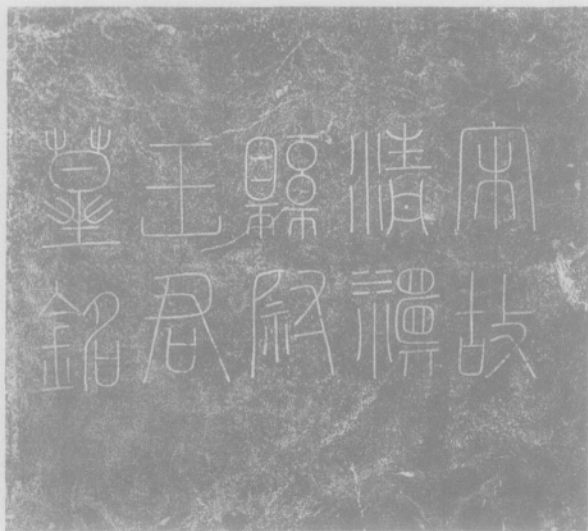 宋故
清
縣尉
王君
墓銘